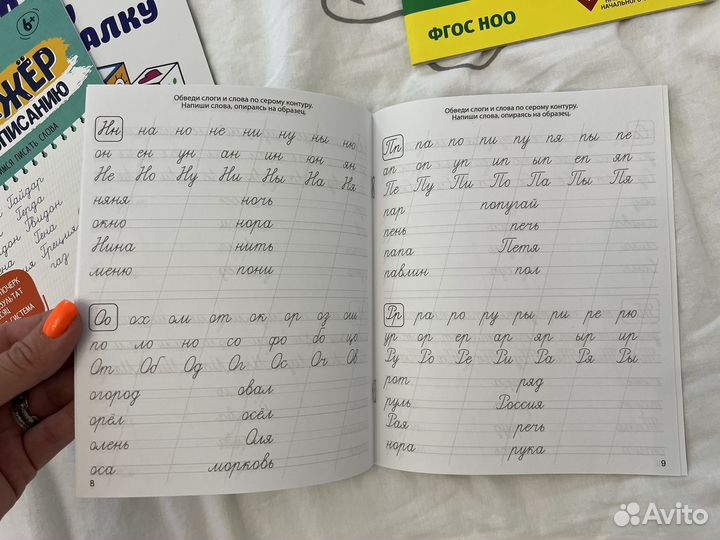 АЛКУ
6+
ЖЁР
ОПИСАНИЮ
МСЯ ПИСАТЬ СЛОВА
Гайдар
Герда
Гвидон
Гена
Греция
гад
ПОЧЕРК
ЗУЛЬТАТ
СИСТЕМА
ФГОС НОО
НАЧАЛЬНОГО
Обведи слоги и слова по серому контуру.
Напиши слова, опираясь на образец.
Нн на но не ни ну ны ню
он ен ун ан ин юн ян
Не Но Ну Ни Ны На Ня
няня ночь
окно нора
Нина нить
меню пони
Оо ох ом от ок ор оз ош
по ло но со фо бо цо
От Об Од Ог Ос Оч Ов
огород овал
орёл осёл
олень Оля
оса морковь
8
Обведи слоги и слова по серому контуру.
Напиши слова, опираясь на образец.
Пп па по пи пу пя пы пе
ап оп уп ип ып еп яп
Пе Пу Пи По Па Пы Пя
пар попугай
пень печь
папа Петя
павлин пол
Рр ра ро ру ры ри ре рю
ур ор ер ар яр ыр ир
Ру Ро Ре Ри Ра Ря Ры
рот ряд
руль Россия
Рая речь
нора рука
9
Avito